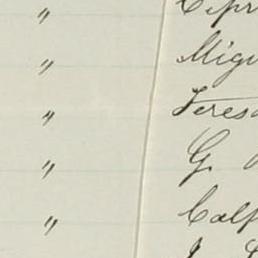 " Cipr
" Migu
" Teresa
" G.
" Calp